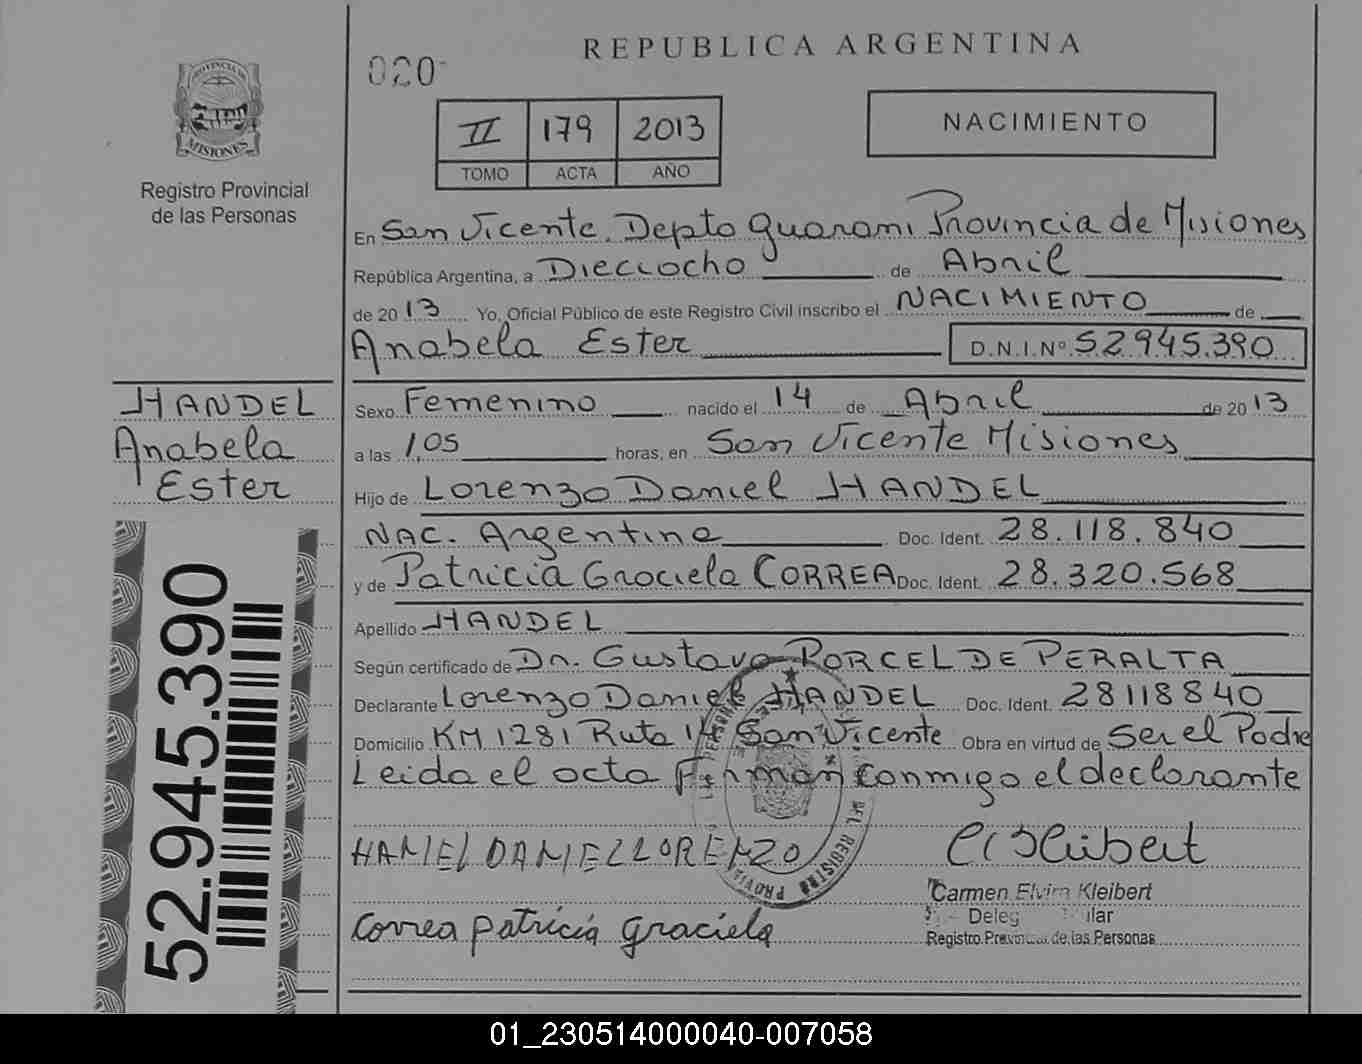 REPUBLICA ARGENTINA
020
II 179 2013
TOMO ACTA AÑO
NACIMIENTO
PROVINCIA DE
MISIONES
Registro Provincial
de las Personas
En San Vicente. Depto Guarani Provincia de Misiones
República Argentina, a Dieciocho de Abril
de 2013 Yo, Oficial Público de este Registro Civil inscribo el NACIMIENTO de
Anabela Ester D.N.I.Nº 52.945.390
HANDEL
Anabela
Ester
52.945.390
Sexo Femenino nacido el 14 de Abril de 2013
a las 1,05 horas, en San Vicente Misiones
Hijo de Lorenzo Daniel HANDEL
Nac. Argentina Doc. Ident. 28.118.840
y de Patricia Graciela CORREA Doc. Ident. 28.320.568
Apellido HANDEL
Según certificado de Dr. Gustavo PORCEL DE PERALTA
Declarante Lorenzo Daniel HANDEL Doc. Ident. 28118840
Domicilio KM 1281 Ruta 14 San Vicente Obra en virtud de Ser el Padre
Leida el acta Firman conmigo el declarante
DEL REGISTRO PROVI LAS PERSONAS
HANEL DANIEL LORENZO
Carmen Elvira Kleibert
Deleg
Registro Provincial de las Personas
Correa Patricia Graciela
01_230514000040-007058